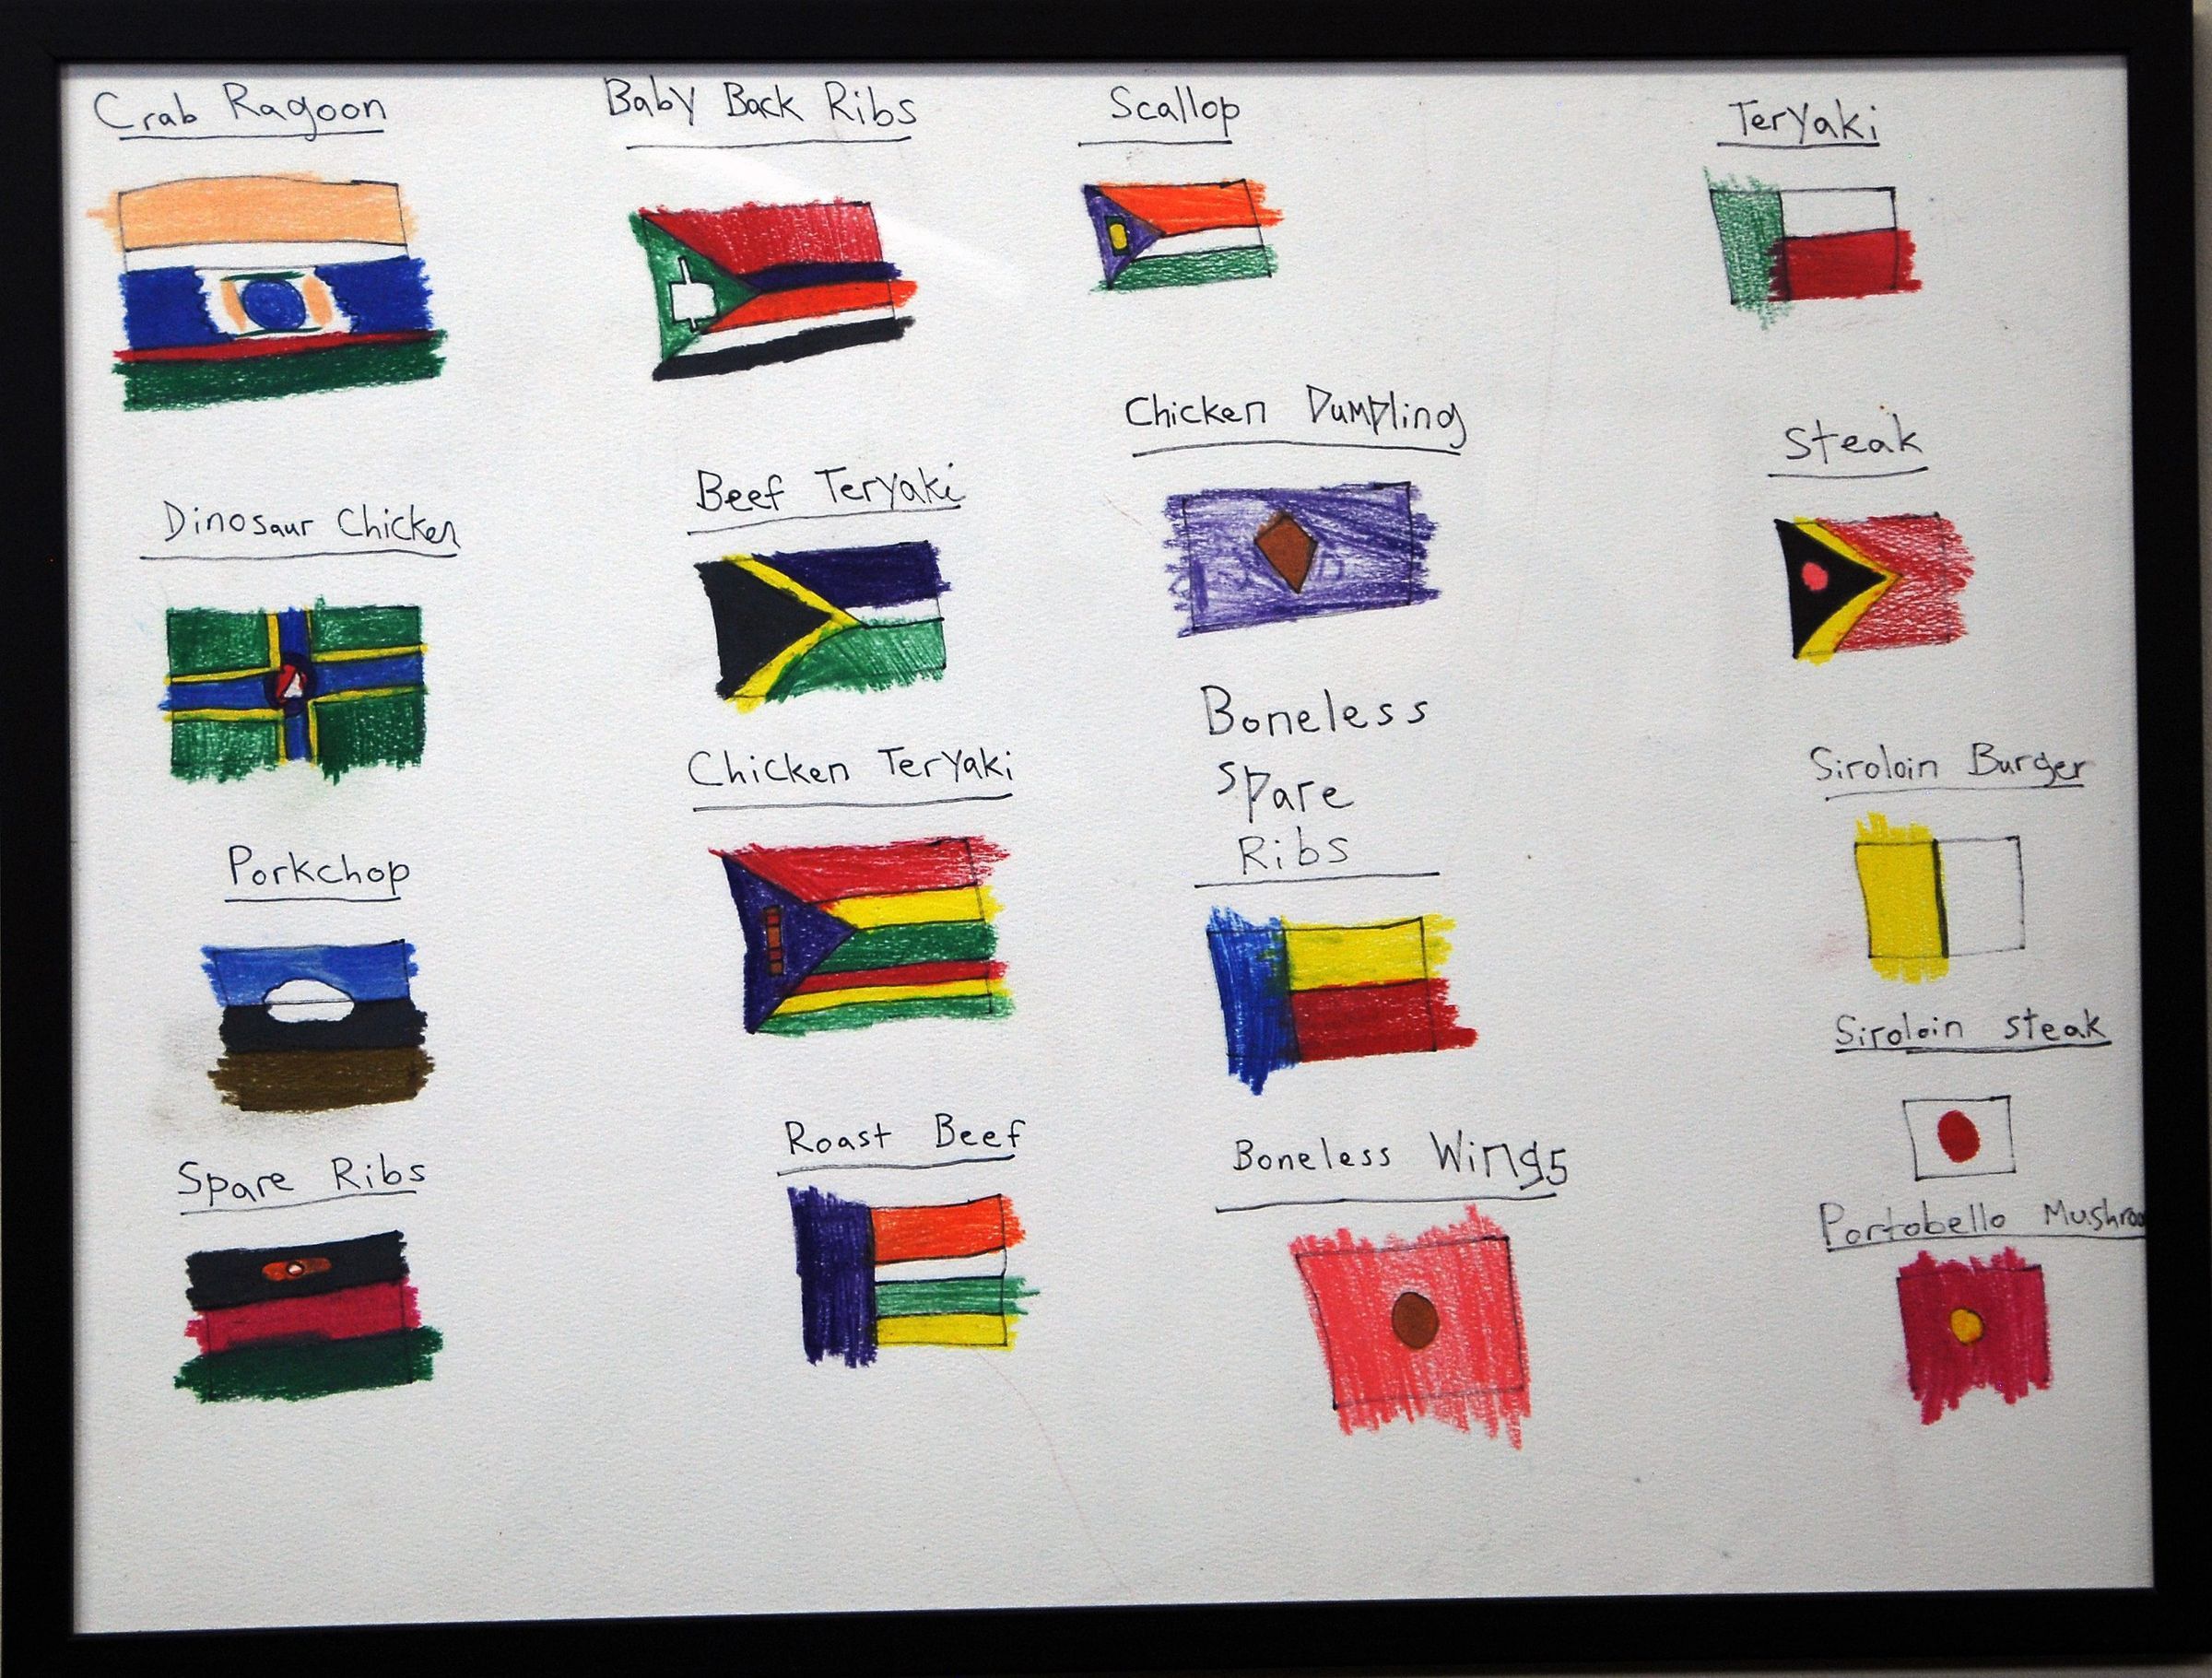 Crab Ragoon
Baby Back Ribs
Scallop
Teryaki
Chicken Dumpling
Steak
Beef Teryaki
Dinosaur Chicken
Boneless
Spare
Ribs
Chicken Teryaki
Siroloin Burger
Porkchop
Siroloin steak
Roast Beef
Boneless Wings
Spare Ribs
Portobello Mushroo